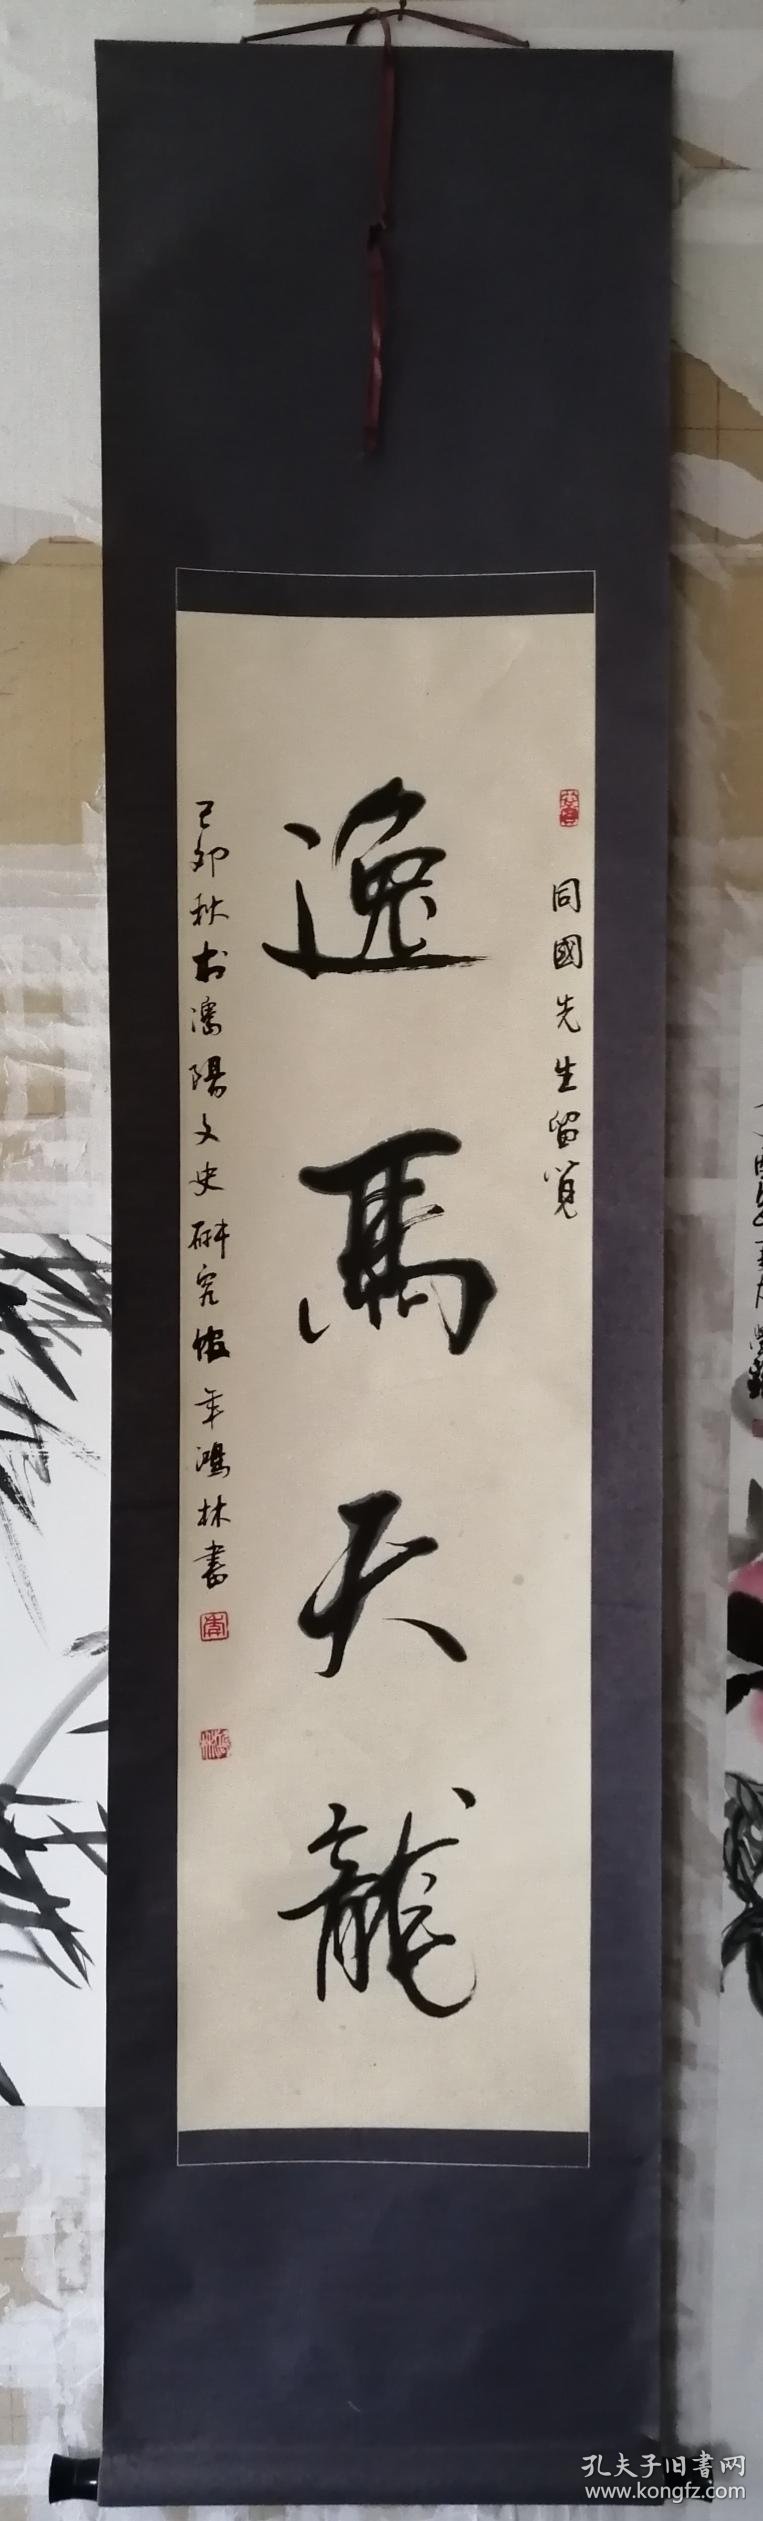 同國先生留览
逸馬天龍
己卯秋於瀋陽文史研究馆年鴻林書
孔夫子旧書网
www.kongfz.com